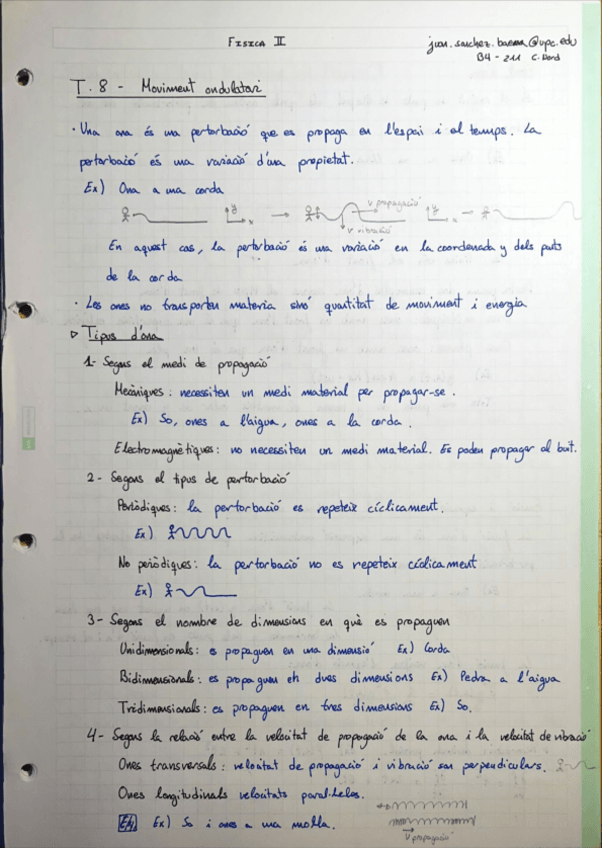 FISICA II
juan.sanchez.barrera@upc.edu
B4 - 211
T. 8 - Moviment ondulatori
· Una ona és una pertorbació que es propaga en l'espai i el temps. La
pertorbació és una variació d'una propietat.
Ex) Ona a una corda
v propagació
y x y x
v vibració
En aquest cas, la pertorbació és una variació en la coordenada y dels punts
de la corda
· Les ones no transporten materia sinó quantitat de moviment i energia
▷ Tipus d'ona
1- Segons el medi de propagació
Mecàniques: necessiten un medi material per propagar-se.
Ex) So, ones a l'aigua, ones a la corda.
Electromagnètiques: no necessiten un medi material. Es poden propagar al buit.
2- Segons el tipus de pertorbació
Periòdiques: la pertorbació es repeteix cíclicament.
Ex)
No periòdiques: la pertorbació no es repeteix cíclicament
Ex)
3- Segons el nombre de dimensions en què es propaguen
Unidimensionals: es propaguen en una dimensió Ex) Corda
Bidimensionals: es propaguen en dues dimensions Ex) Pedra a l'aigua
Tridimensionals: es propaguen en tres dimensions Ex) So.
4- Segons la relació entre la velocitat de propagació de la ona i la velocitat de vibració
Ones transversals: velocitat de propagació i vibració son perpendiculars.
Ones longitudinals velocitats paral·leles.
Ex) So i ones a una molla.
v propagació